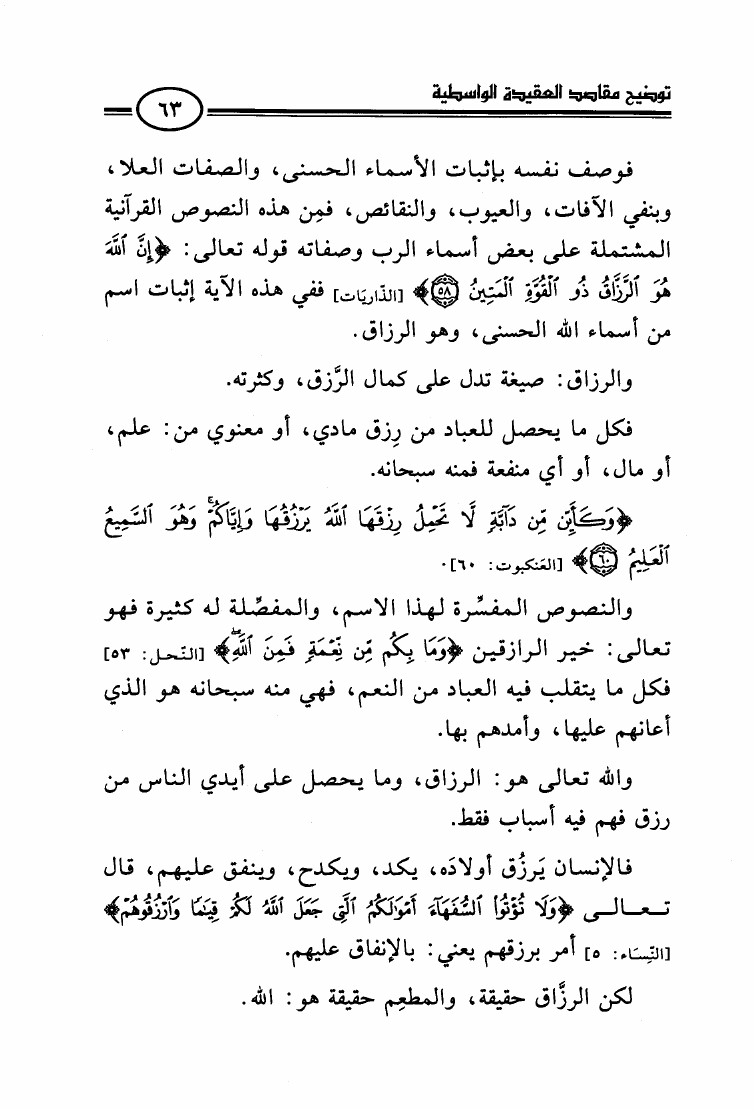 توضيح مقاصد العقيدة الواسطية
٦٣
فوصف نفسه بإثبات الأسماء الحسنى، والصفات العلا،
وبنفي الآفات، والعيوب، والنقائص، فمِن هذه النصوص القرآنية
المشتملة على بعض أسماء الرب وصفاته قوله تعالى: ﴿إِنَّ ٱللَّهَ
هُوَ ٱلرَّزَّاقُ ذُو ٱلْقُوَّةِ ٱلْمَتِينُ ٥٨﴾ [الذّاريَات] ففي هذه الآية إثبات اسم
من أسماء الله الحسنى، وهو الرزاق.
والرزاق: صيغة تدل على كمال الرَّزق، وكثرته.
فكل ما يحصل للعباد من رِزق مادي، أو معنوي من: علم،
أو مال، أو أي منفعة فمنه سبحانه.
﴿وَكَأَيِّن مِّن دَآبَّةٍ لَّا تَحْمِلُ رِزْقَهَا ٱللَّهُ يَرْزُقُهَا وَإِيَّاكُمْ ۚ وَهُوَ ٱلسَّمِيعُ
ٱلْعَلِيمُ ٦٠﴾ [العَنكبوت: ٦٠].
والنصوص المفسِّرة لهذا الاسم، والمفصِّلة له كثيرة فهو
تعالى: خير الرازقين ﴿وَمَا بِكُم مِّن نِّعْمَةٍ فَمِنَ ٱللَّهِ ۖ﴾ [النّحل: ٥٣]
فكل ما يتقلب فيه العباد من النعم، فهي منه سبحانه هو الذي
أعانهم عليها، وأمدهم بها.
والله تعالى هو: الرزاق، وما يحصل على أيدي الناس من
رزق فهم فيه أسباب فقط.
فالإنسان يَرزُق أولادَه، يكد، ويكدح، وينفق عليهم، قال
تعالى ﴿وَلَا تُؤْتُوا۟ ٱلسُّفَهَآءَ أَمْوَٰلَكُمُ ٱلَّتِى جَعَلَ ٱللَّهُ لَكُمْ قِيَٰمًا وَٱرْزُقُوهُمْ﴾
[النِّسَاء: ٥] أمر برزقهم يعني: بالإنفاق عليهم.
لكن الرزَّاق حقيقة، والمطعِم حقيقة هو: الله.